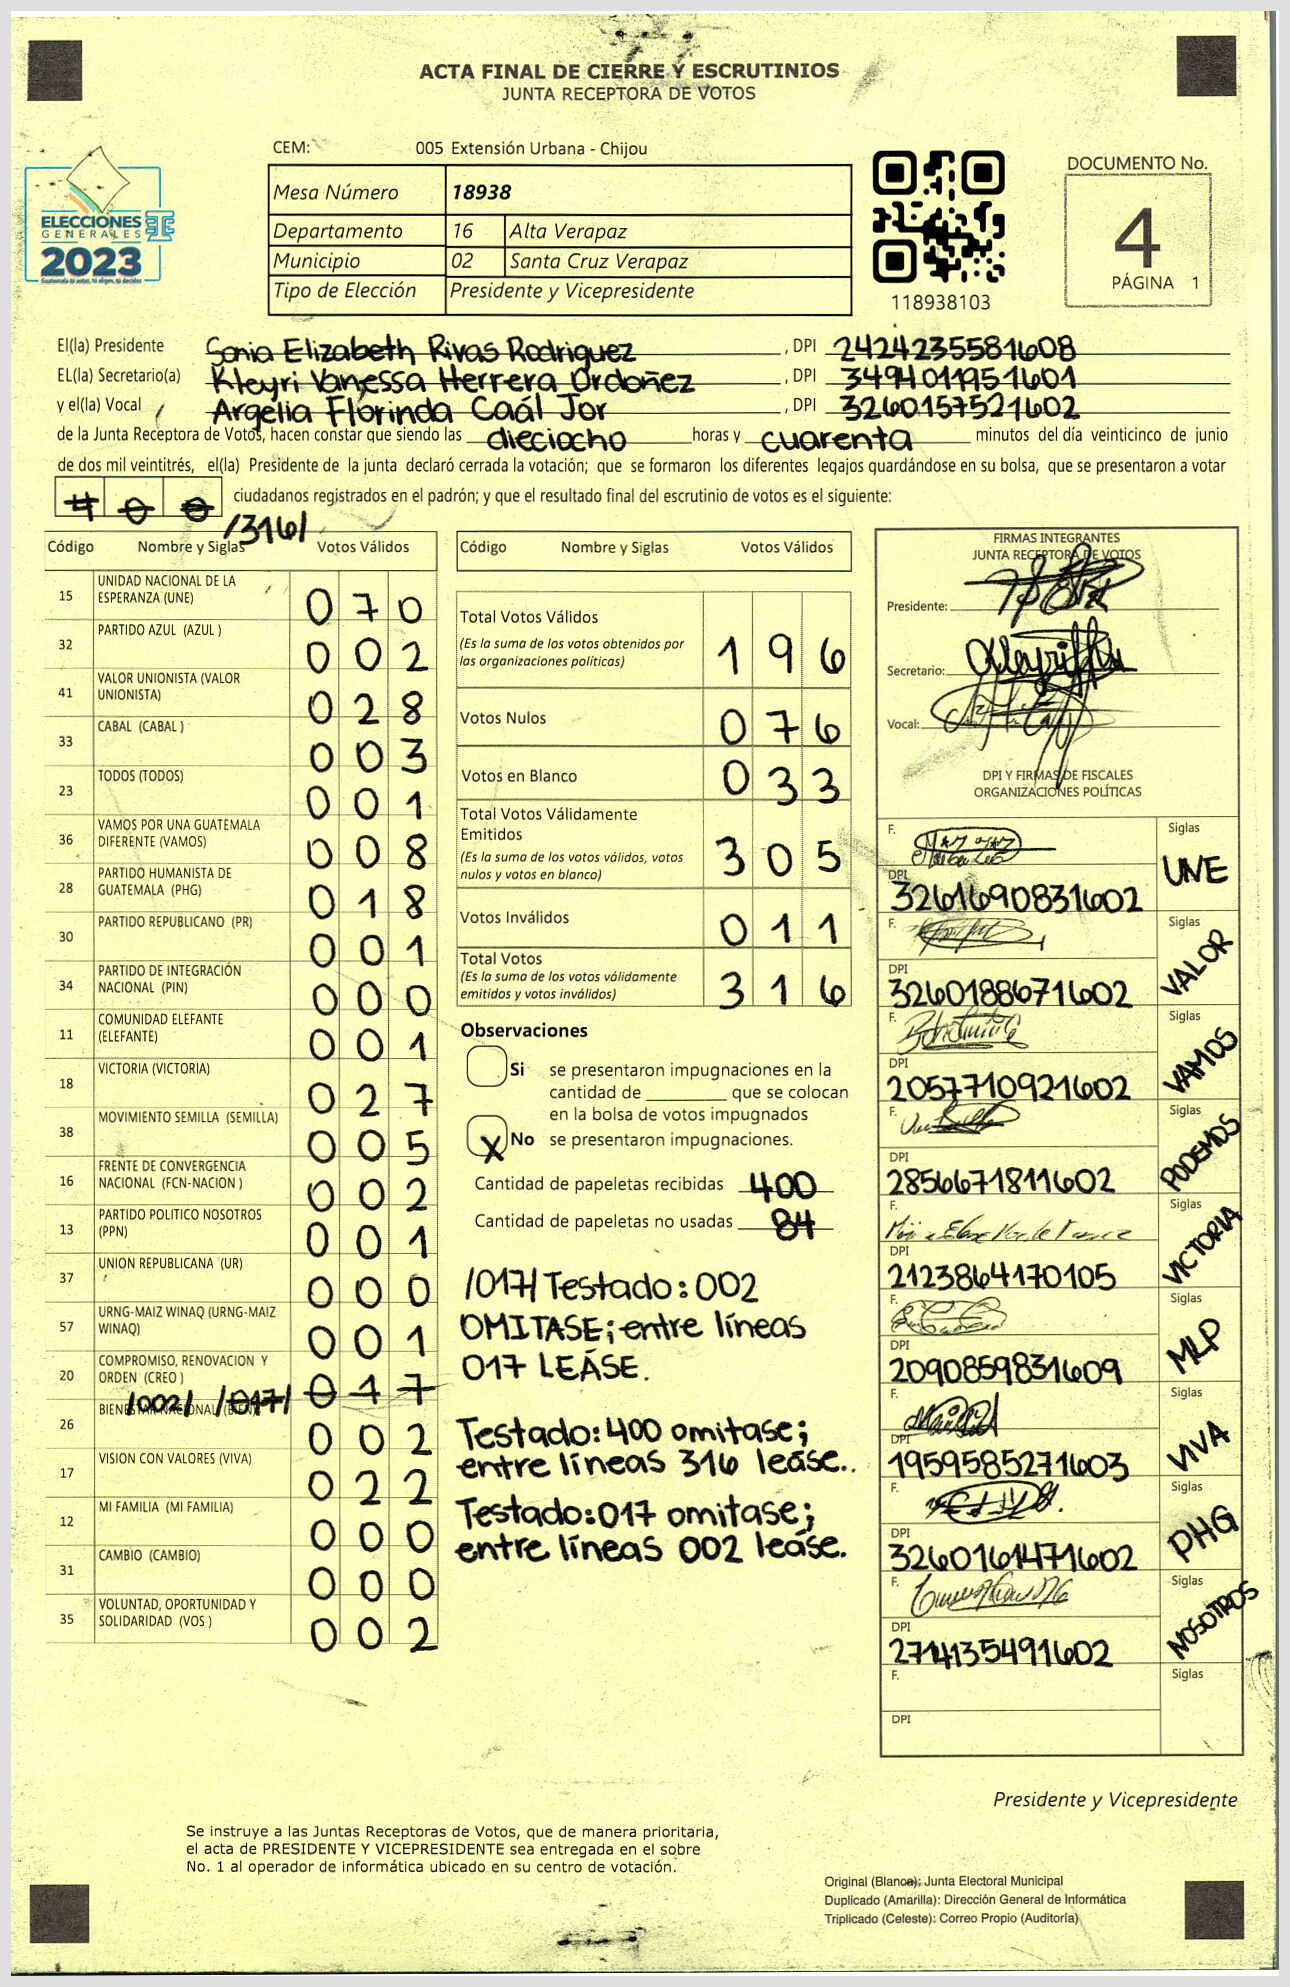 ACTA FINAL DE CIERRE Y ESCRUTINIOS
JUNTA RECEPTORA DE VOTOS
CEM: 005 Extensión Urbana - Chijou
ELECCIONES
GENERALES
2023
Mesa Número 18938
Departamento 16 Alta Verapaz
Municipio 02 Santa Cruz Verapaz
Tipo de Elección Presidente y Vicepresidente
118938103
DOCUMENTO No.
4
PÁGINA 1
El(la) Presidente Sonia Elizabeth Rivas Rodriguez, DPI 2424235581608
EL(la) Secretario(a) Kleyri Vanessa Herrera Ordoñez, DPI 3494011951601
y el(la) Vocal Argelia Florinda Caál Jor, DPI 3260157521602
de la Junta Receptora de Votos, hacen constar que siendo las dieciocho horas y cuarenta minutos del día veinticinco de junio
de dos mil veintitrés, el(la) Presidente de la junta declaró cerrada la votación; que se formaron los diferentes legajos guardándose en su bolsa, que se presentaron a votar
4 0 0 ciudadanos registrados en el padrón; y que el resultado final del escrutinio de votos es el siguiente:
/316/
Código Nombre y Siglas Votos Válidos
15 UNIDAD NACIONAL DE LA ESPERANZA (UNE) 0 7 0
32 PARTIDO AZUL (AZUL ) 0 0 2
41 VALOR UNIONISTA (VALOR UNIONISTA) 0 2 8
33 CABAL (CABAL ) 0 0 3
23 TODOS (TODOS) 0 0 1
36 VAMOS POR UNA GUATEMALA DIFERENTE (VAMOS) 0 0 8
28 PARTIDO HUMANISTA DE GUATEMALA (PHG) 0 1 8
30 PARTIDO REPUBLICANO (PR) 0 0 1
34 PARTIDO DE INTEGRACIÓN NACIONAL (PIN) 0 0 0
11 COMUNIDAD ELEFANTE (ELEFANTE) 0 0 1
18 VICTORIA (VICTORIA) 0 2 7
38 MOVIMIENTO SEMILLA (SEMILLA) 0 0 5
16 FRENTE DE CONVERGENCIA NACIONAL (FCN-NACION ) 0 0 2
13 PARTIDO POLITICO NOSOTROS (PPN) 0 0 1
37 UNION REPUBLICANA (UR) 0 0 0
57 URNG-MAIZ WINAQ (URNG-MAIZ WINAQ) 0 0 1
20 COMPROMISO, RENOVACION Y ORDEN (CREO ) 0 1 7
/002/ /017/
26 BIENESTAR NACIONAL (BIEN) 0 0 2
17 VISION CON VALORES (VIVA) 0 2 2
12 MI FAMILIA (MI FAMILIA) 0 0 0
31 CAMBIO (CAMBIO) 0 0 0
35 VOLUNTAD, OPORTUNIDAD Y SOLIDARIDAD (VOS ) 0 0 2
Código Nombre y Siglas Votos Válidos
Total Votos Válidos 1 9 6
(Es la suma de los votos obtenidos por
las organizaciones políticas)
Votos Nulos 0 7 6
Votos en Blanco 0 3 3
Total Votos Válidamente
Emitidos 3 0 5
(Es la suma de los votos válidos, votos
nulos y votos en blanco)
Votos Inválidos 0 1 1
Total Votos 3 1 6
(Es la suma de los votos válidamente
emitidos y votos inválidos)
Observaciones
Si se presentaron impugnaciones en la
cantidad de ________ que se colocan
en la bolsa de votos impugnados
X No se presentaron impugnaciones.
Cantidad de papeletas recibidas 400
Cantidad de papeletas no usadas 84
/017/ Testado: 002
OMITASE; entre líneas
017 LEÁSE.
Testado: 400 omitase;
entre líneas 316 leáse..
Testado: 017 omitase;
entre líneas 002 leáse.
FIRMAS INTEGRANTES
JUNTA RECEPTORA DE VOTOS
Presidente:
Secretario:
Vocal:
DPI Y FIRMAS DE FISCALES
ORGANIZACIONES POLÍTICAS
F. Siglas
DPI 3261690831602 UNE
F.
DPI 3260188671602 VALOR
F. Siglas
DPI 2057710921602 VAMOS
F. Siglas
DPI 2856671811602 PODEMOS
F. Siglas
DPI 2123864170105 VICTORIA
F. Siglas
DPI 2090859831609 MLP
F. Siglas
DPI 1959585271603 VIVA
F. Siglas
DPI 3260161471602 PHG
F. Siglas
DPI 2714135491602 NOSOTROS
F. Siglas
DPI
Presidente y Vicepresidente
Se instruye a las Juntas Receptoras de Votos, que de manera prioritaria,
el acta de PRESIDENTE Y VICEPRESIDENTE sea entregada en el sobre
No. 1 al operador de informática ubicado en su centro de votación.
Original (Blanca): Junta Electoral Municipal
Duplicado (Amarilla): Dirección General de Informática
Triplicado (Celeste): Correo Propio (Auditoría)